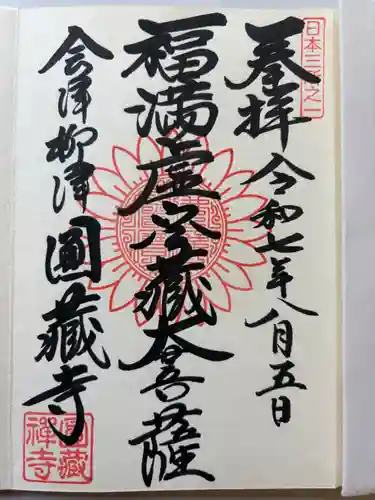 日本三所之一
奉拝 令和七年八月五日
福満虚空蔵大菩薩
会津柳津 圓蔵寺
圓蔵
禅寺